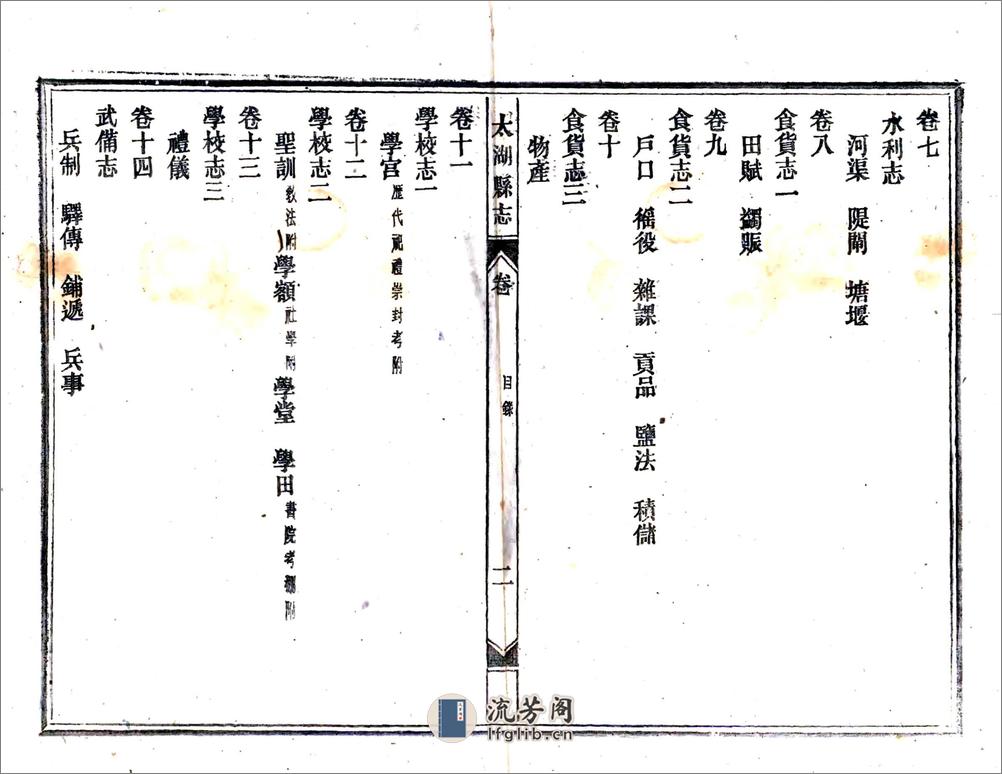 卷七
水利志
河渠 隄閘 塘堰
卷八
食貨志一
田賦 蠲賑
卷九
食貨志二
戶口 徭役 雜課 貢品 鹽法 積儲
卷十
食貨志三
物產
太湖縣志 卷 目錄 二
卷十一
學校志一
學宮 歷代祀禮崇封考附
卷十二
學校志二
聖訓 敎法附 學額 社學附 學堂 學田 書院考棚附
卷十三
學校志三
禮儀
卷十四
武備志
兵制 驛傳 鋪遞 兵事
流芳阁
lfglib.cn